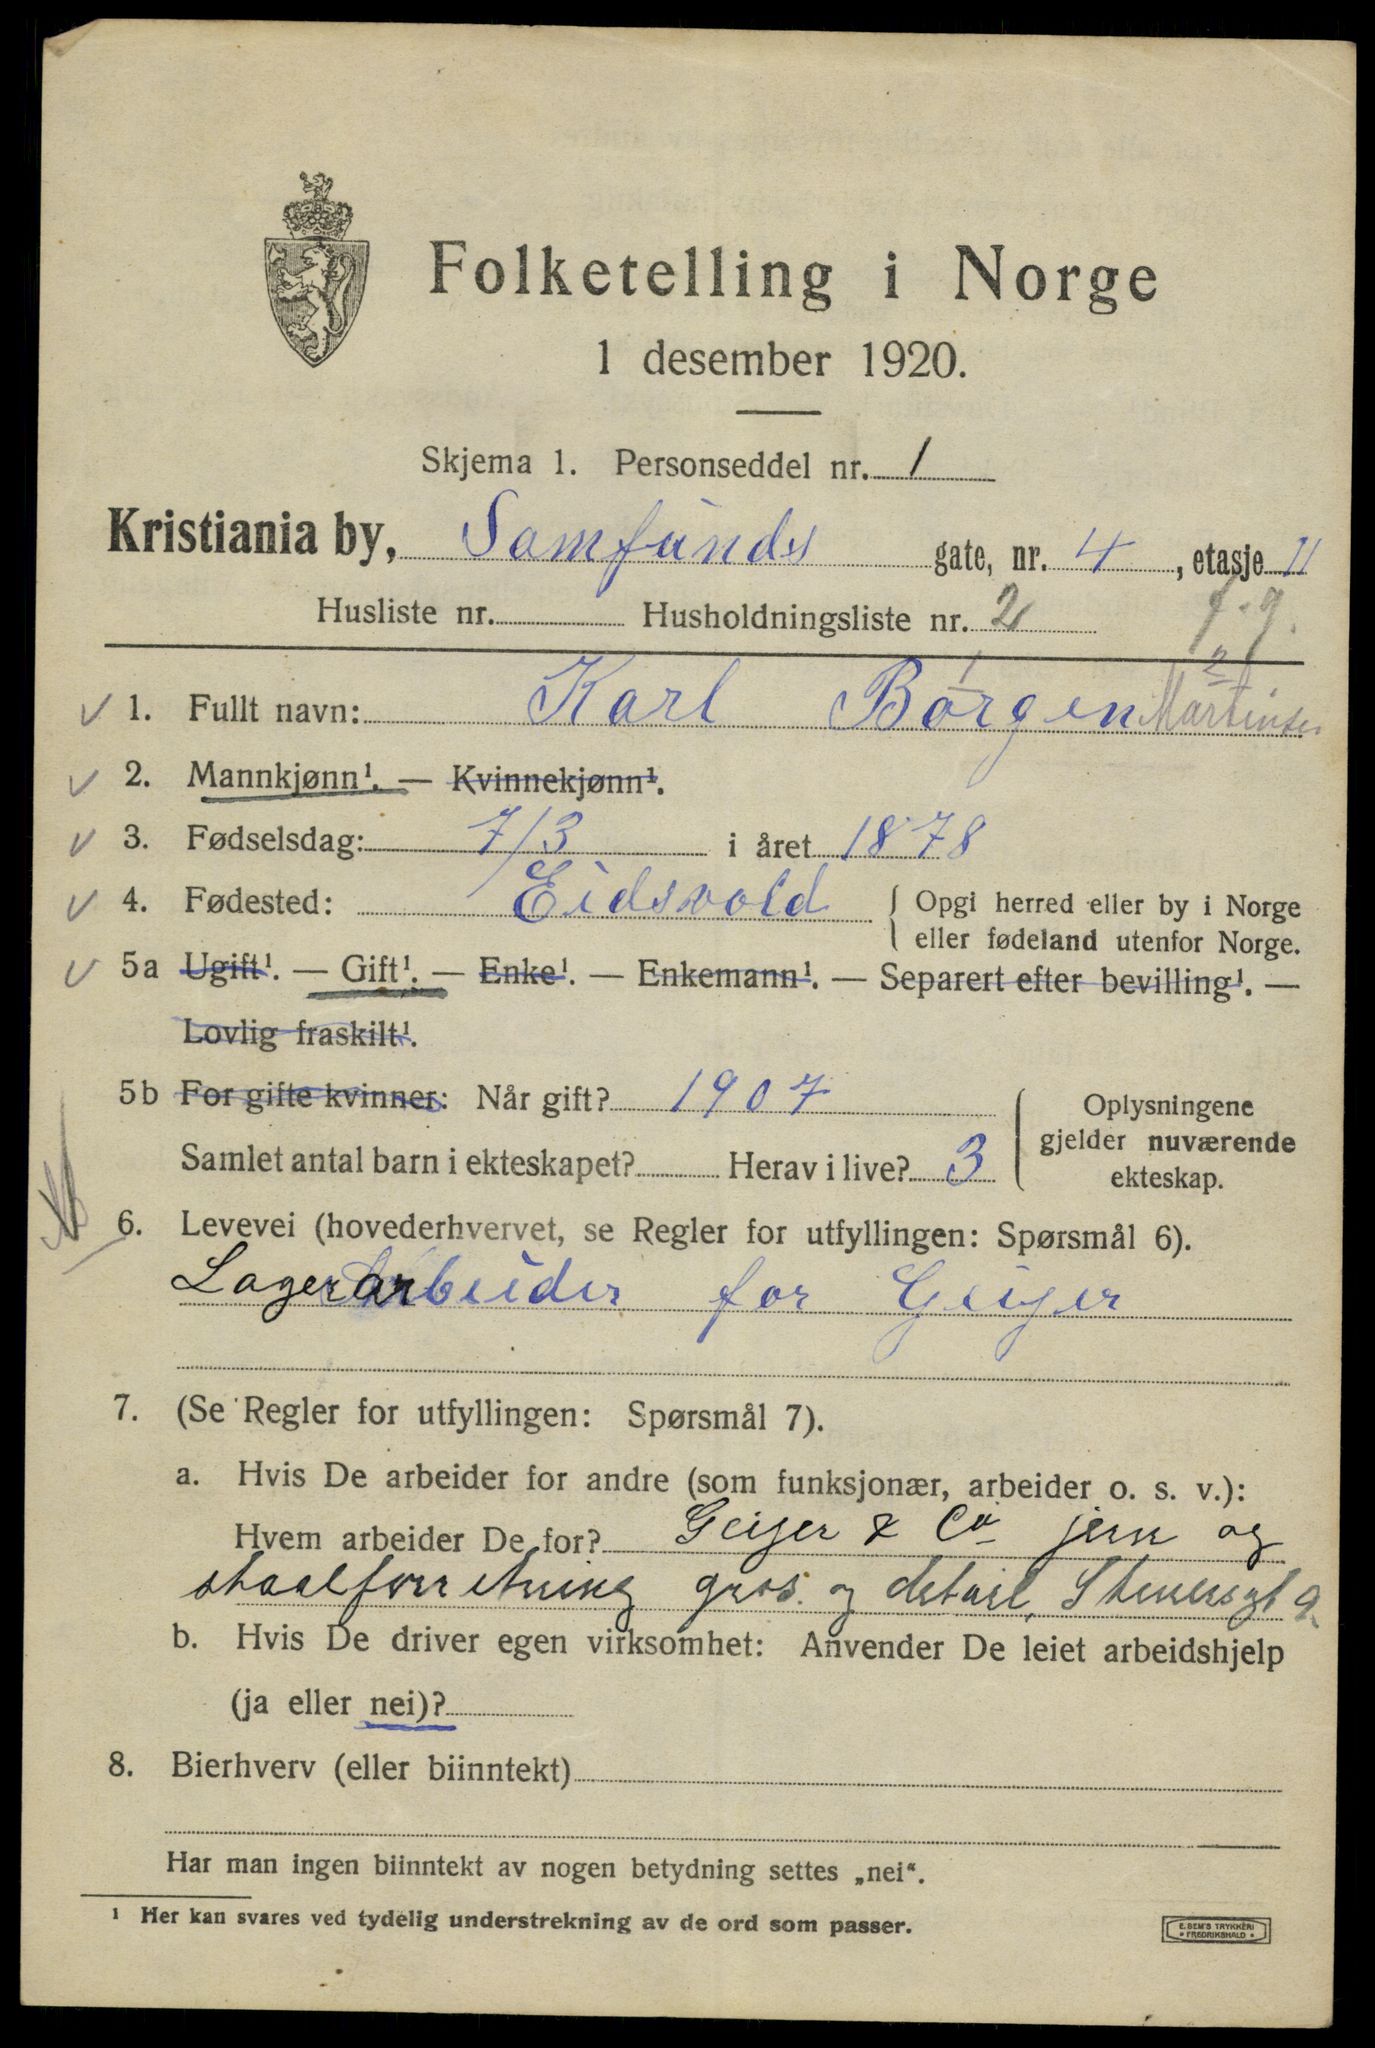 Folketelling i Norge
1 desember 1920.
Skjema 1. Personseddel nr. 1
Kristiania by, Samfunds gate, nr. 4, etasje 11
Husliste nr. Husholdningsliste nr. 2 f. g.
1 2
1. Fullt navn: Karl Børgen Martinsen
2. Mannkjønn¹. — Kvinnekjønn¹.
3. Fødselsdag: 7/3 i året 1878
4. Fødested: Eidsvold { Opgi herred eller by i Norge
eller fødeland utenfor Norge.
5a Ugift¹. — Gift¹. — Enke¹. — Enkemann¹. — Separert efter bevilling¹. —
Lovlig fraskilt¹.
5b For gifte kvinner: Når gift? 1907
Samlet antal barn i ekteskapet? Herav i live? 3
Oplysningene
gjelder nuværende
ekteskap.
6. Levevei (hovederhvervet, se Regler for utfyllingen: Spørsmål 6).
Lagerarbeider for Geiger
7. (Se Regler for utfyllingen: Spørsmål 7).
a. Hvis De arbeider for andre (som funksjonær, arbeider o. s. v.):
Hvem arbeider De for? Geijer & Co jern og
staalforretning gros. og detail, Stenersgt 9.
b. Hvis De driver egen virksomhet: Anvender De leiet arbeidshjelp
(ja eller nei)?
8. Bierhverv (eller biinntekt)
Har man ingen biinntekt av nogen betydning settes „nei“.
¹ Her kan svares ved tydelig understrekning av de ord som passer.
E. SEM'S TRYKKERI
• FREDRIKSHALD •